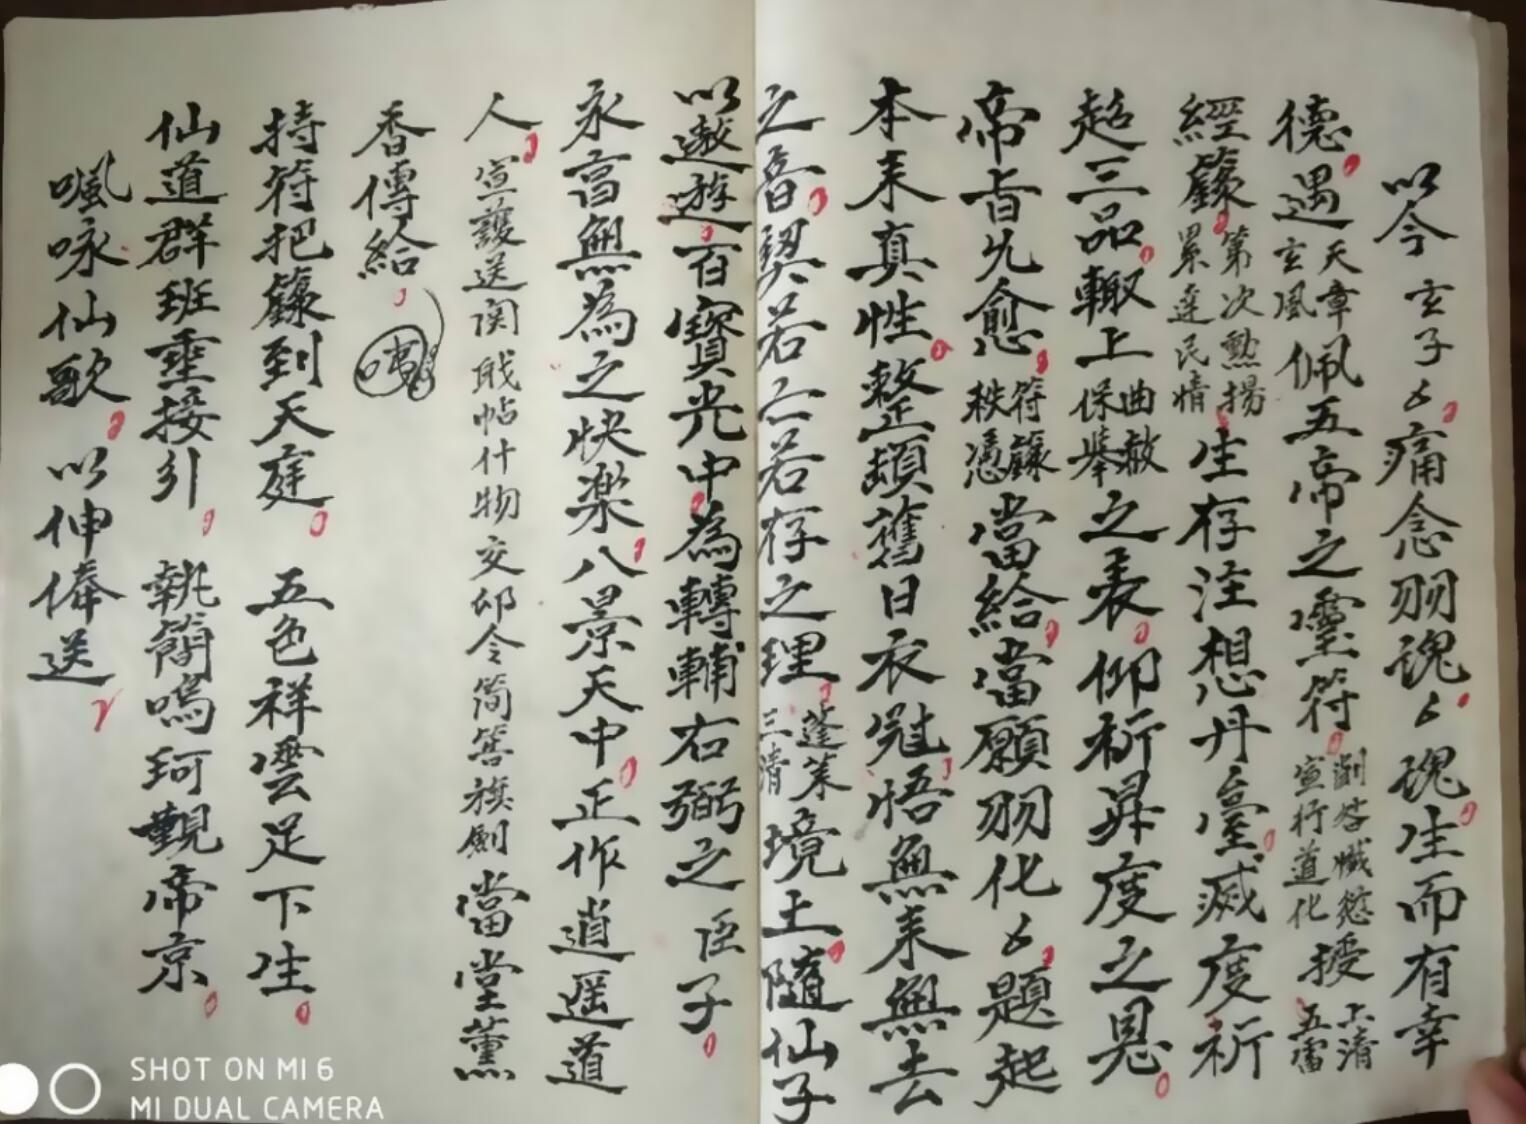 以今玄子厶痛念羽魂厶魂生而有幸
德遇天章玄風佩五帝之靈符宣行道化授上清五雷
經籙第次勲揚累達民情生存注想丹臺滅度祈
超三品輙上曲赦保舉之表仰祈昇度之恩
帝旨允愈符籙秩憑當給當願羽化厶題起
本来真性整頓舊日衣冠悟無来無去
之音契若亡若存之理蓬莱三清境土隨仙子
以遨遊百寶光中為轉輔右弼之臣子
永高無為之快楽八景天中正作逍遥道
人宣護送関戝帖什物交卸令简箁旗劍當堂薰
香傳給
持符把籙到天庭 五色祥雲足下生
仙道群班垂接引 執簡鳴珂觐帝京
諷咏仙歌 以伸俸送
SHOT ON MI 6
MI DUAL CAMERA